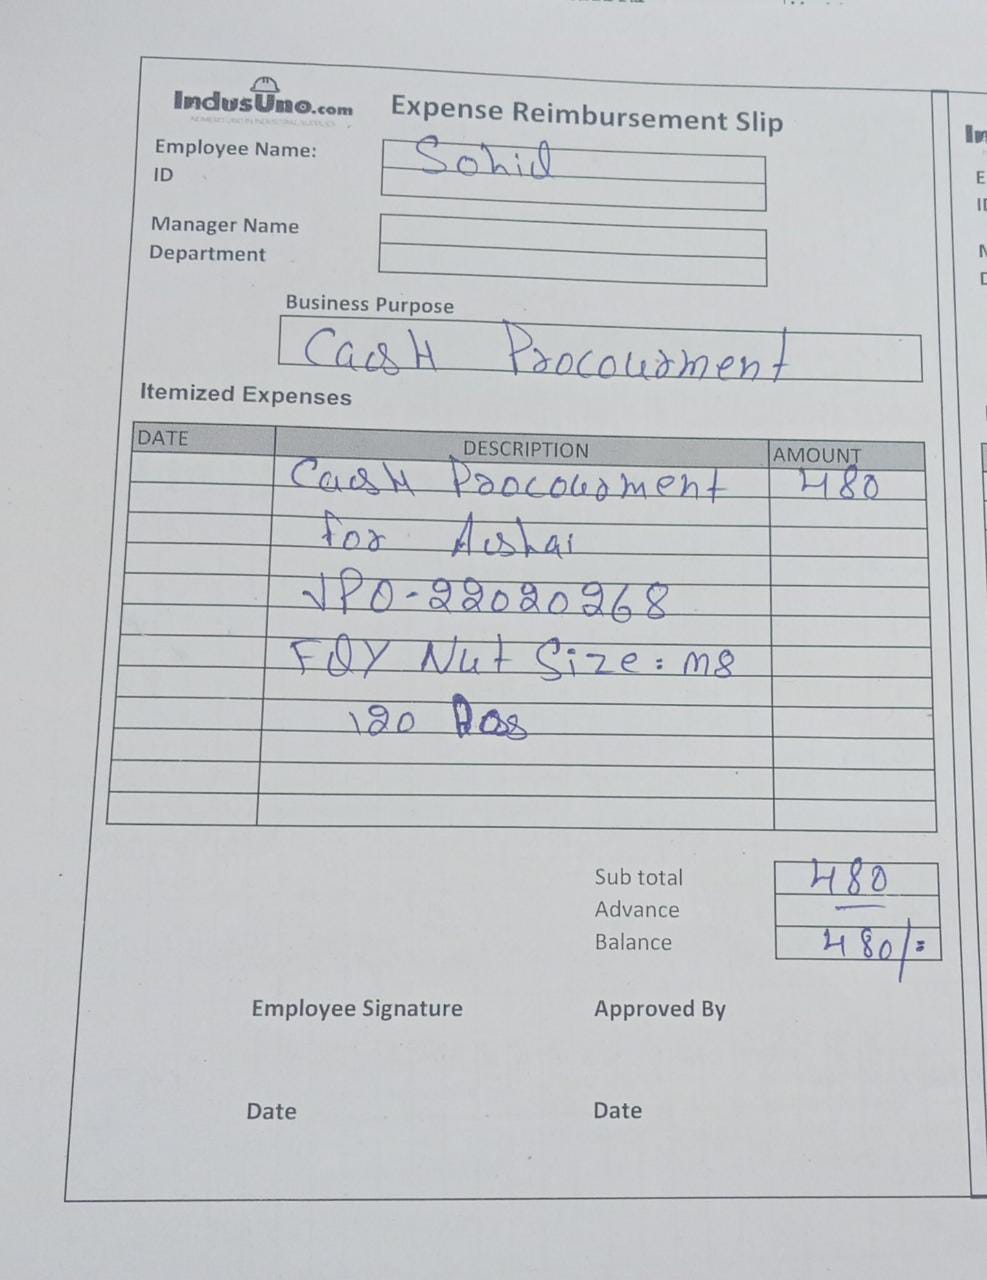 IndusUno.com
Expense Reimbursement Slip
Employee Name: Sohid
ID
Manager Name
Department
Business Purpose
Cash Procourment
Itemized Expenses
DATE DESCRIPTION AMOUNT
Cash Procourment 480
for
JPO-22020268
FQY Nut Size: M8
120
Sub total 480
Advance —
Balance 480/=
Employee Signature Approved By
Date Date
In
E
ID